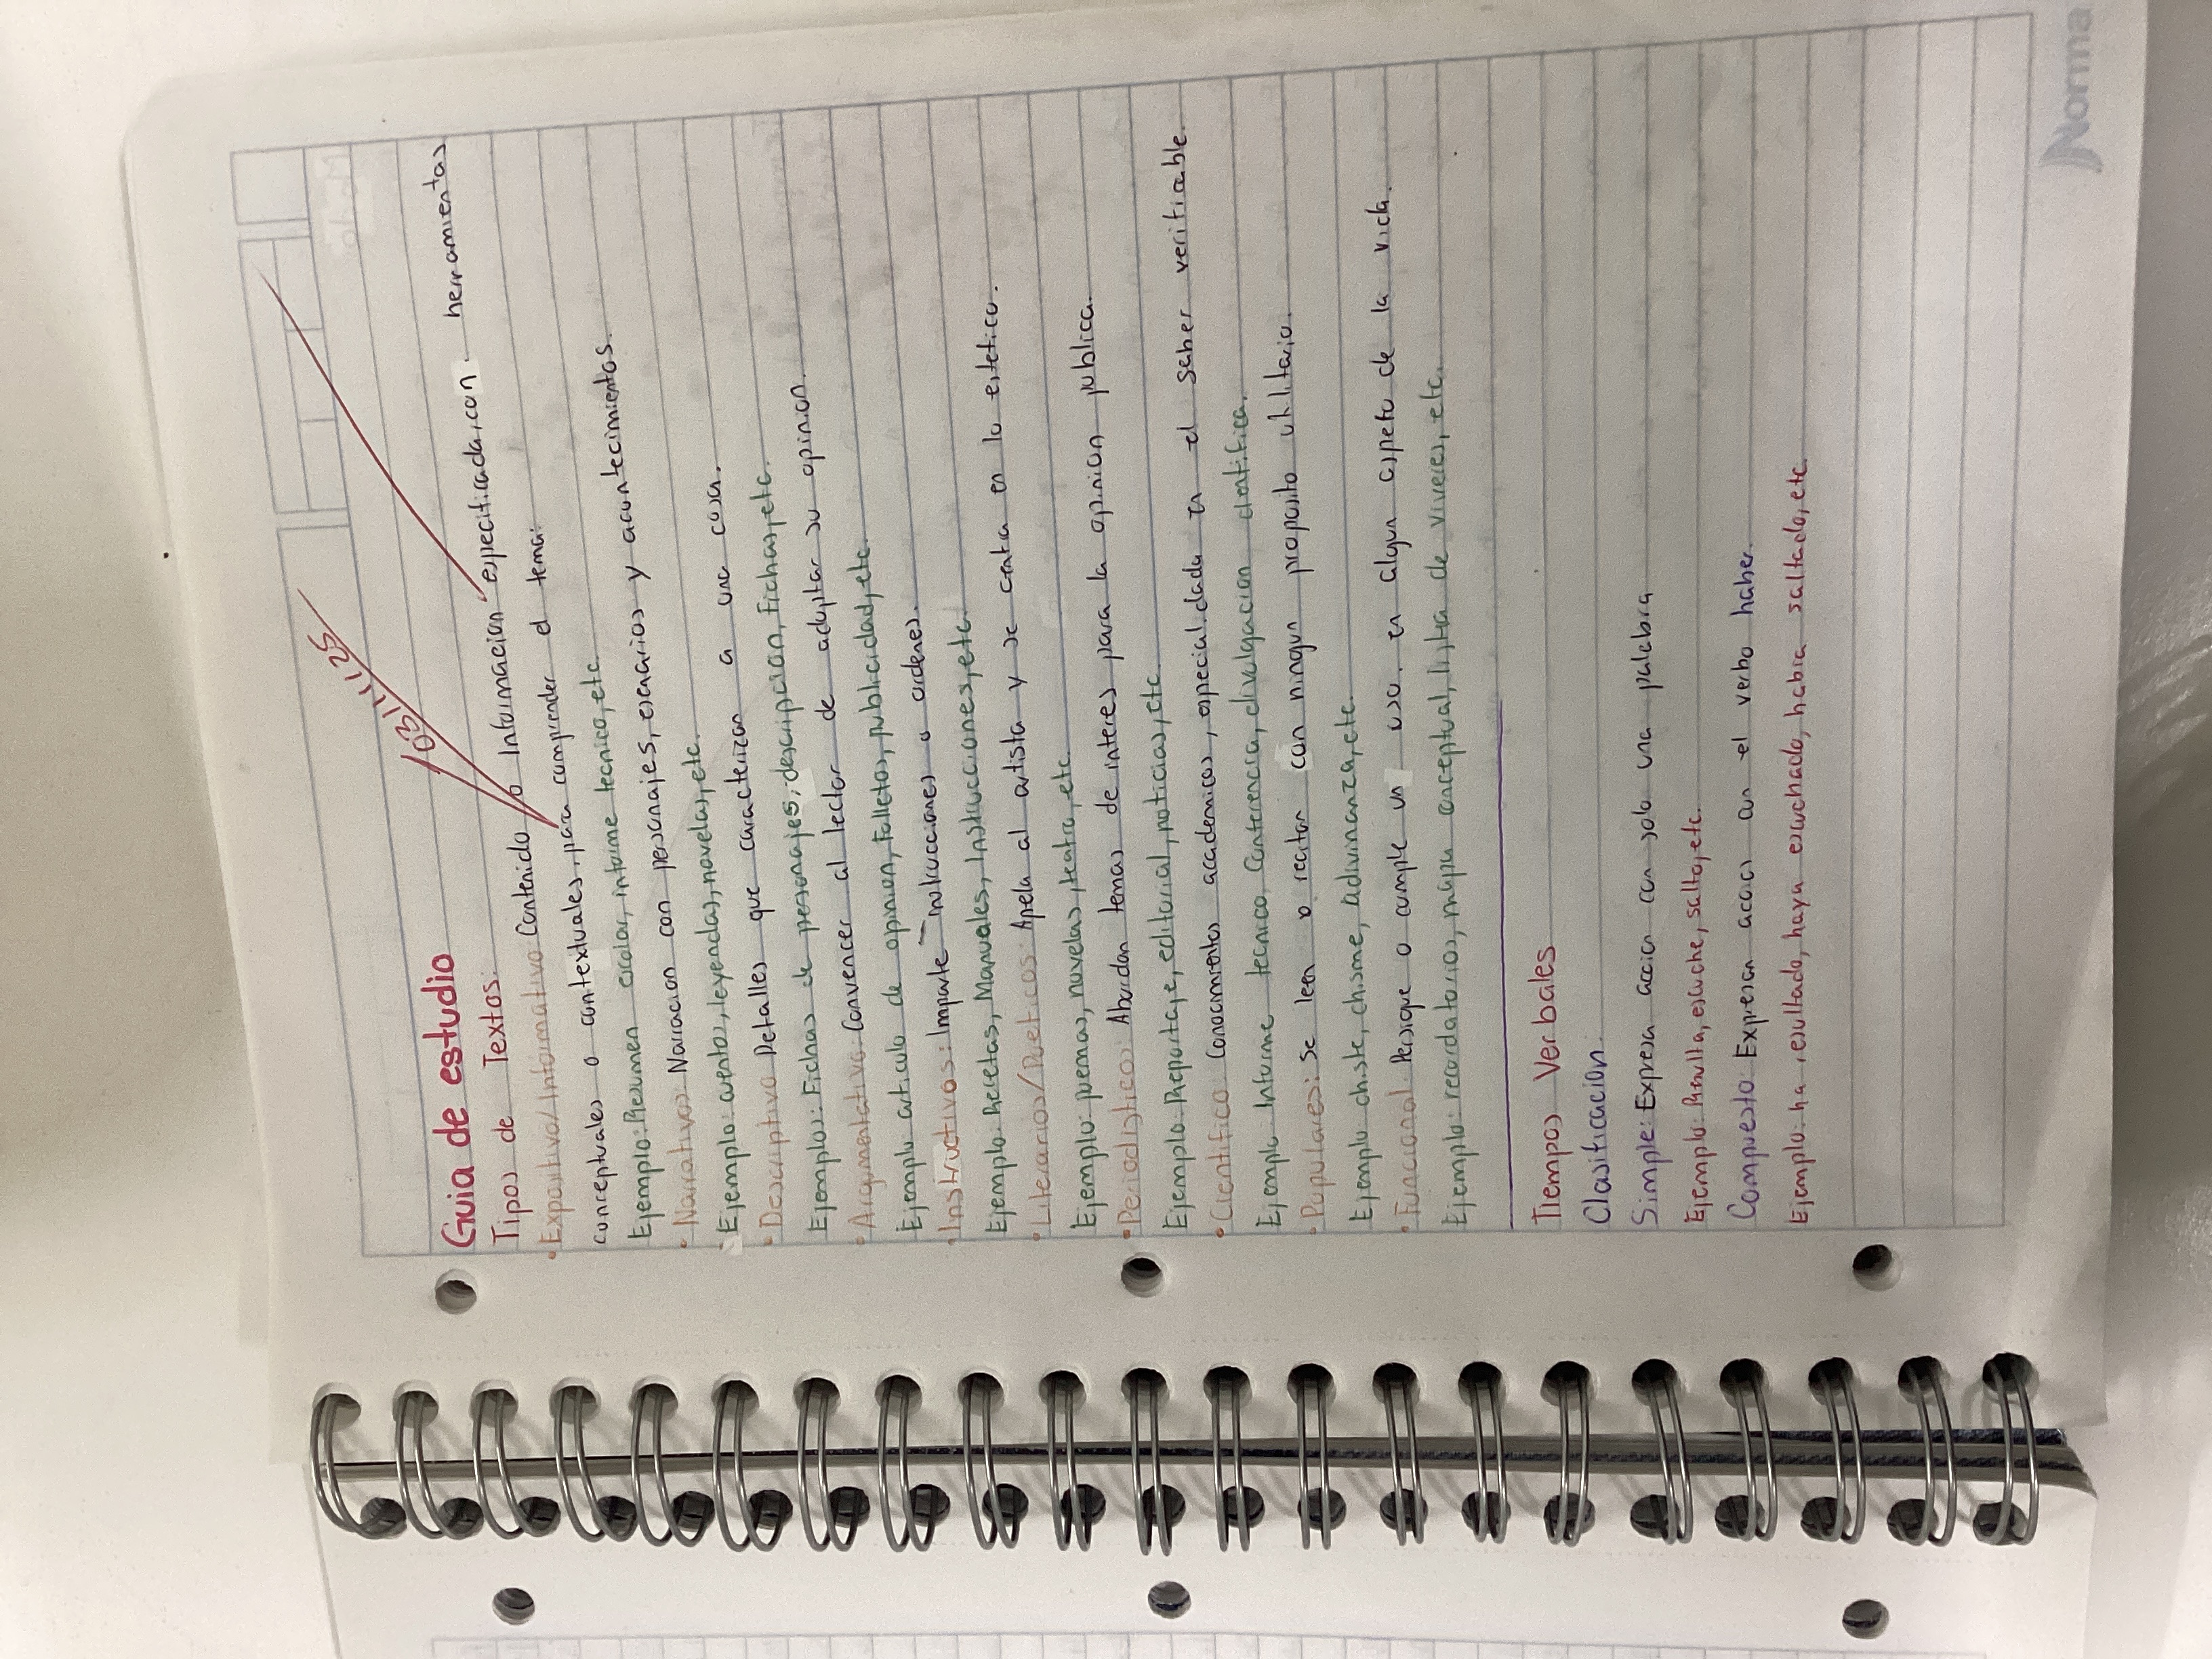 03/11/25
Guia de estudio
Tipos de Textos:
• Expositivo/Informativo: Contenido o Informacion especificada, con herramientas
conceptuales o contextuales, para comprender el tema.
Ejemplo: Resumen escolar, informe tecnico, etc.
• Narrativos: Narracion con personajes, escenarios y acontecimientos.
Ejemplo: cuentos, leyendas, novelas, etc.
• Descriptivo: Detalles que caracterizan a una cosa.
Ejemplos: Fichas de personajes, descripcion, Fichas, etc.
• Argumentativo: Convencer al lector de adoptar su opinion.
Ejemplo: articulo de opinion, Folletos, publicidad, etc.
• Instructivos: Imparte instrucciones o ordenes.
Ejemplo: Recetas, Manuales, Instrucciones, etc.
• Literarios/Poeticos: Apela al artista y se centra en lo estetico.
Ejemplo: poemas, novelas, teatro, etc.
• Periodisticos: Abordan temas de interes para la opinion publica.
Ejemplo: Reportaje, editorial, noticias, etc.
• Cientifico: Conocimientos academicos, especialidada en el saber verificable.
Ejemplo: Informe tecnico, Conferencia, divulgacion cientifica.
• Populares: Se leen o recitan con ningun proposito utilitario.
Ejemplo: chiste, chisme, adivinanza, etc.
• Funcional: Persique o cumple un uso en algun aspeto de la vida.
Ejemplo: recordatorios, mapa conceptual, lista de viveres, etc.
Tiempos Verbales
Clasificacion:
Simple: Expresa accion con solo una palabra
Ejemplo: Resulta, escuche, salto, etc.
Compuesto: Expresan accion con el verbo haber.
Ejemplo: ha resultado, haya escuchado, habia saltado, etc.
Norma